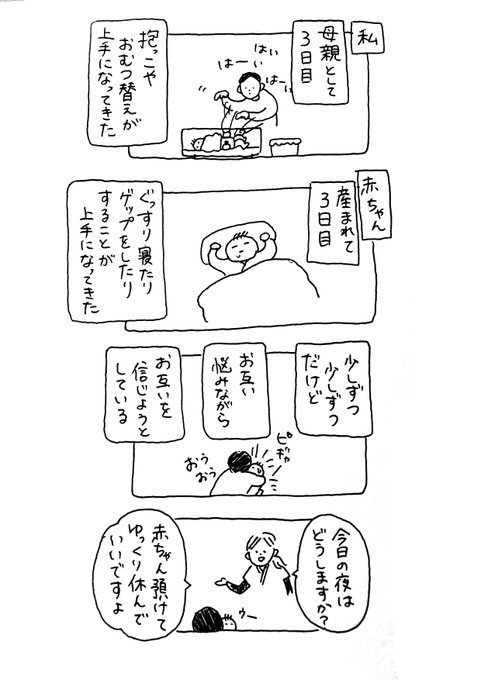 私
母親として
3日目
はぃ
はーぃ
はーぃ
抱っこや
おむつ替えが
上手になってきた
赤ちゃん
産まれて
3日目
ぐっすり寝たり
ゲップをしたり
することが
上手になってきた
少しずつ
少しずつ
だけど
お互い
悩みながら
お互いを
信じようと
している
ピギャ
おぅ
おぅ
今日の夜は
どうしますか?
赤ちゃん預けて
ゆっくり休んで
いいですよ
ゥー